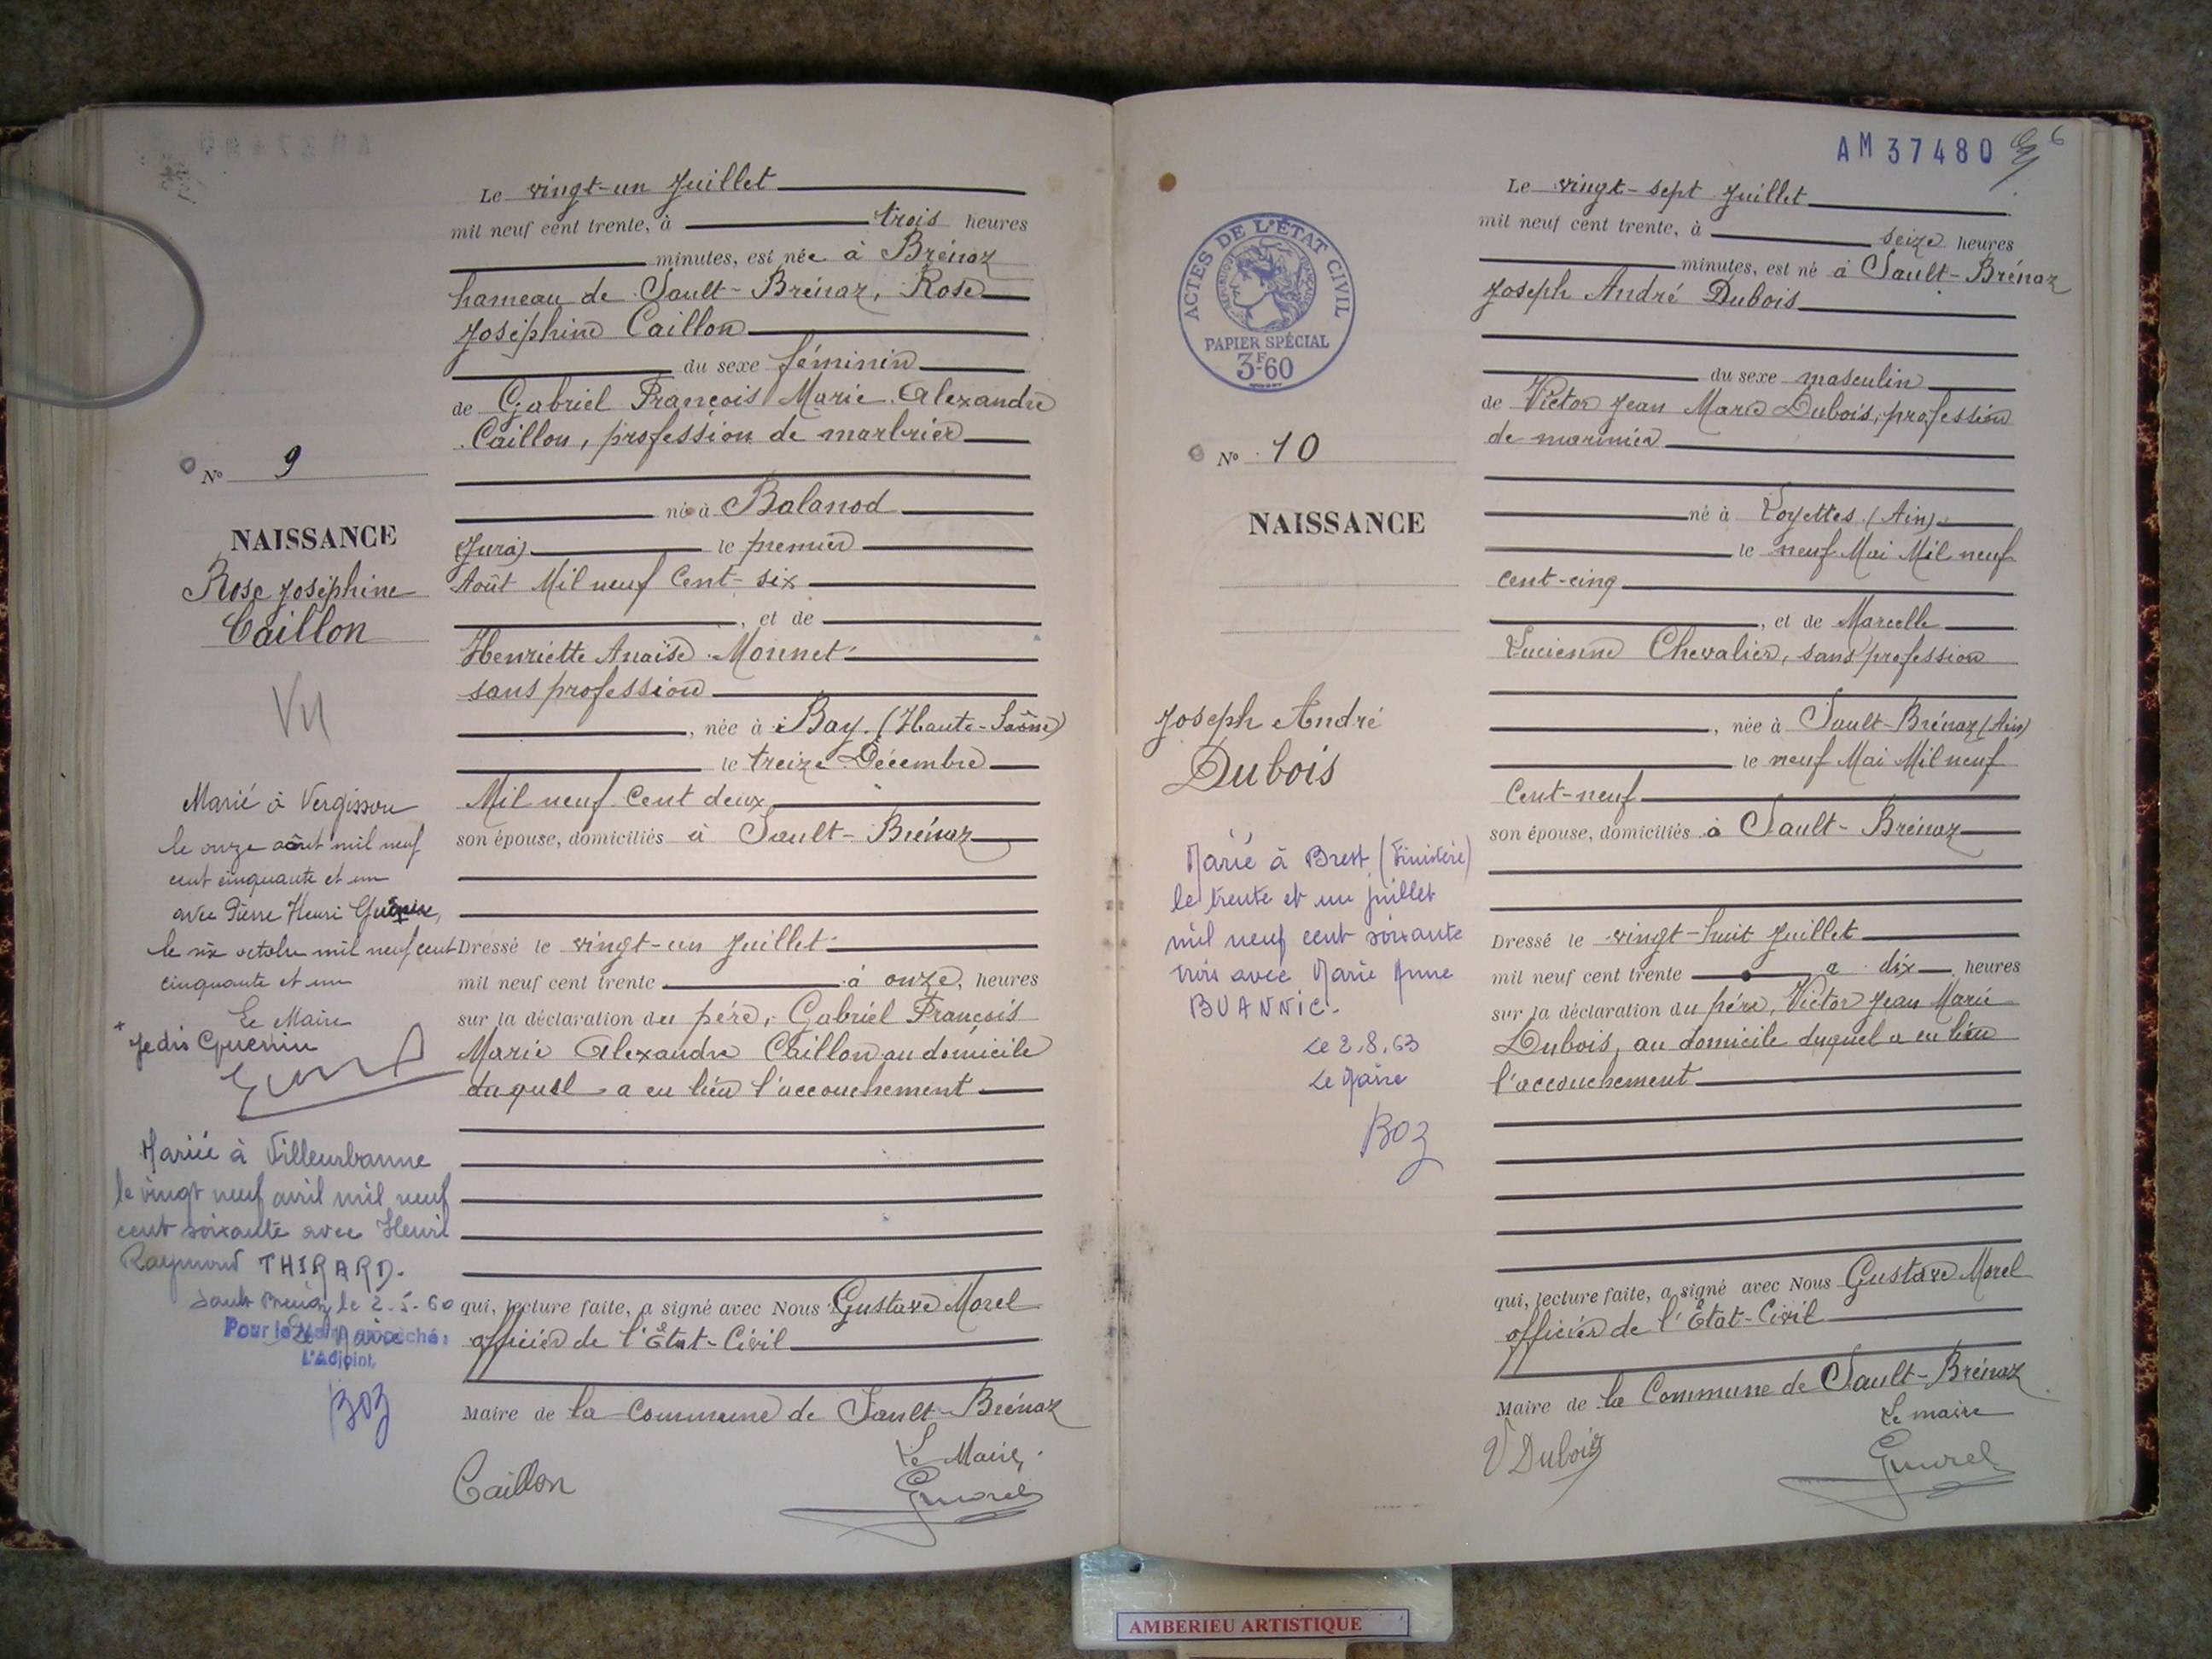 Le vingt-un Juillet
mil neuf cent trente, à trois heures
minutes, est née à Brénaz
hameau de Sault-Brénaz, Rose
Joséphine Caillon
du sexe féminin
de Gabriel François Marie Alexandre
Caillon, profession de marbrier
né à Balanod
(Jura) le premier
Août Mil neuf Cent-six
, et de
Henriette Anaïse Monnet
sans profession
, née à Bay (Haute-Saône)
le treize Décembre
Mil neuf Cent deux
son épouse, domiciliés à Sault-Brénaz
Dressé le vingt-un Juillet
mil neuf cent trente à onze heures
sur la déclaration du père, Gabriel François
Marie Alexandre Caillon au domicile
duquel a eu lieu l'accouchement
qui, lecture faite, a signé avec Nous Gustave Morel
officier de l'État-Civil
Maire de la Commune de Sault-Brénaz
Le Maire,
Caillon
Gmorel
No 9
NAISSANCE
Rose Joséphine
Caillon
Vu
Marié à Vergisson
le onze août mil neuf
cent cinquante et un
avec Pierre Henri
le six octobre mil neuf cent
cinquante et un
Le Maire
+ Je dis Guenin
Mariée à Villeurbanne
le vingt neuf avril mil neuf
cent soixante avec Henri
Raymond THIRARD.
Sault Brénaz le 2.5.60
Pour le Maire empêché:
Le Maire
L'Adjoint,
BOZ
AM 37480
6
Le vingt-sept Juillet
mil neuf cent trente, à seize heures
minutes, est né à Sault-Brénaz
Joseph André Dubois
du sexe masculin
de Victor Jean Marie Dubois, profession
de marinier
né à Loyettes (Ain)
le neuf Mai Mil neuf
cent-cinq
, et de Marcelle
Lucienne Chevalier, sans profession
, née à Sault-Brénaz (Ain)
le neuf Mai Mil neuf
Cent-neuf
son épouse, domiciliés à Sault-Brénaz
Dressé le vingt-huit Juillet
mil neuf cent trente à dix heures
sur la déclaration du père, Victor Jean Marie
Dubois, au domicile duquel a eu lieu
l'accouchement
qui, lecture faite, a signé avec Nous Gustave Morel
officier de l'État-Civil
Maire de la Commune de Sault-Brénaz
Le maire
V Dubois
Gmorel
ACTES DE L'ÉTAT CIVIL
RÉPUBLIQUE FRANÇAISE
PAPIER SPÉCIAL
3F60
No 10
NAISSANCE
Joseph André
Dubois
Marié à Brest (Finistère)
le trente et un juillet
mil neuf cent soixante
trois avec Marie Anne
BUANNIC.
Le 2.8.63
Le Maire
BOZ
AMBERIEU ARTISTIQUE